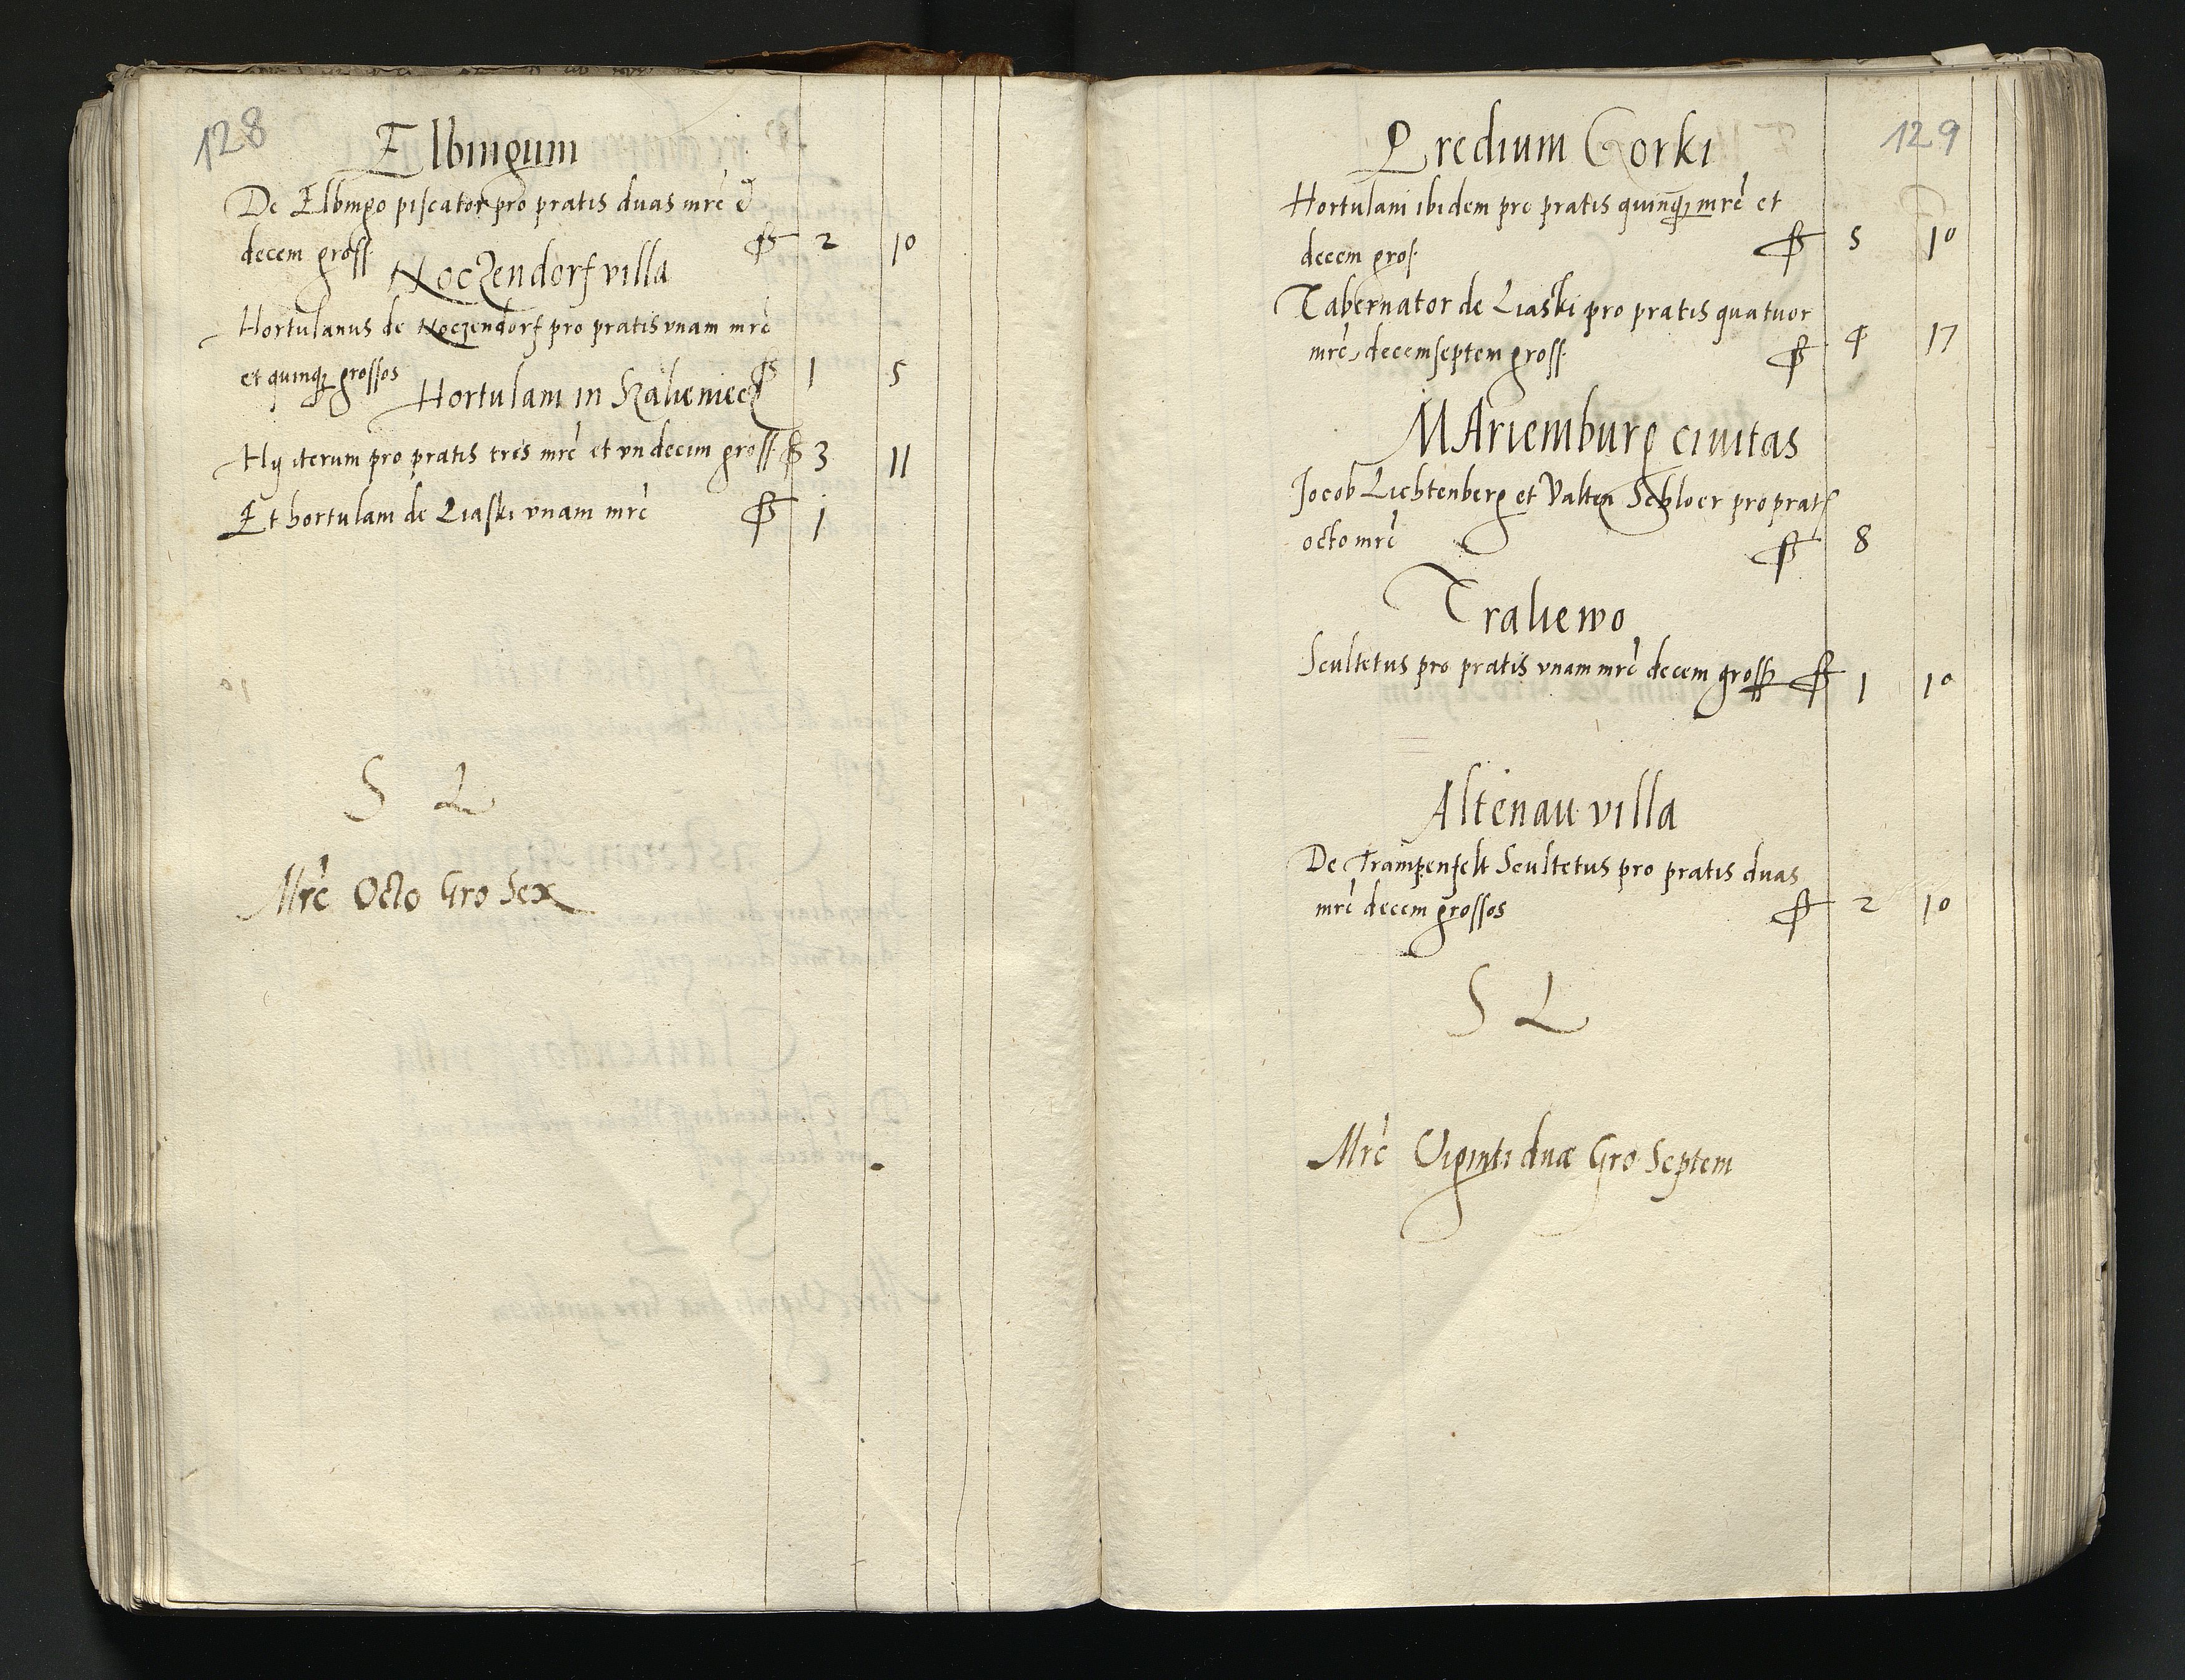 128
Elbingum
De Elbingo piscator pro pratis duas mrc et
decem gross. 2 10
Noczendorf villa
Hortulanus de Noczendorf pro pratis vnam mrc
et quinq3 grossos 1 5
Hortulani in Kaliemecz
Hy iterum pro pratis tres mrc et vndecim gross. 3 11
Et hortulani de Liaski vnam mrc 1
S L
Mrc Octo Gro Sex
129
Predium Gorki
Hortulani ibidem pro pratis quinq3 mrc et
decem gros. 5 10
Tabernator de Liaski pro pratis quatuor
mrc, decemseptem gross. 4 17
MAriemburg ciuitas
Jocob Lichtenberg et Valten Schloer pro prat
octo mrc 8
Traliewo
Scultetus pro pratis vnam mrc decem gross 1 10
Altenau villa
De Trampenfelt Scultetus pro pratis duas
mrc decem grossos 2 10
S L
Mrc Viginti duæ Gro Septem